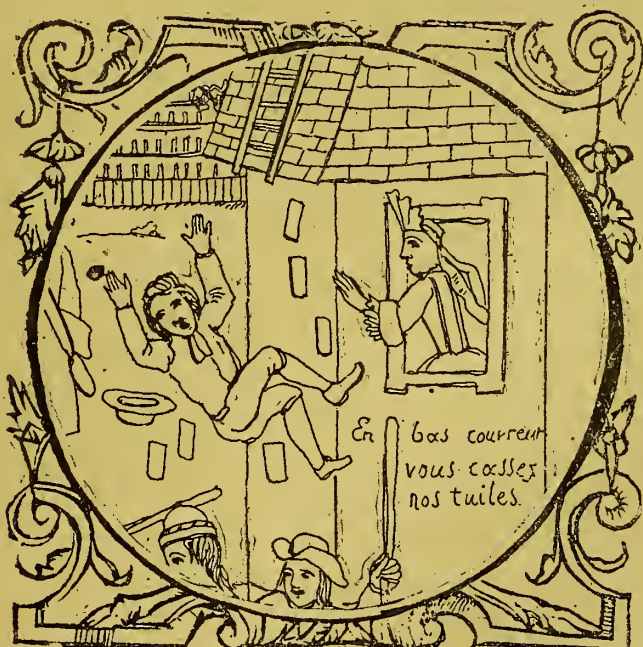 En bas courreur
vous cassez
nos tuiles.